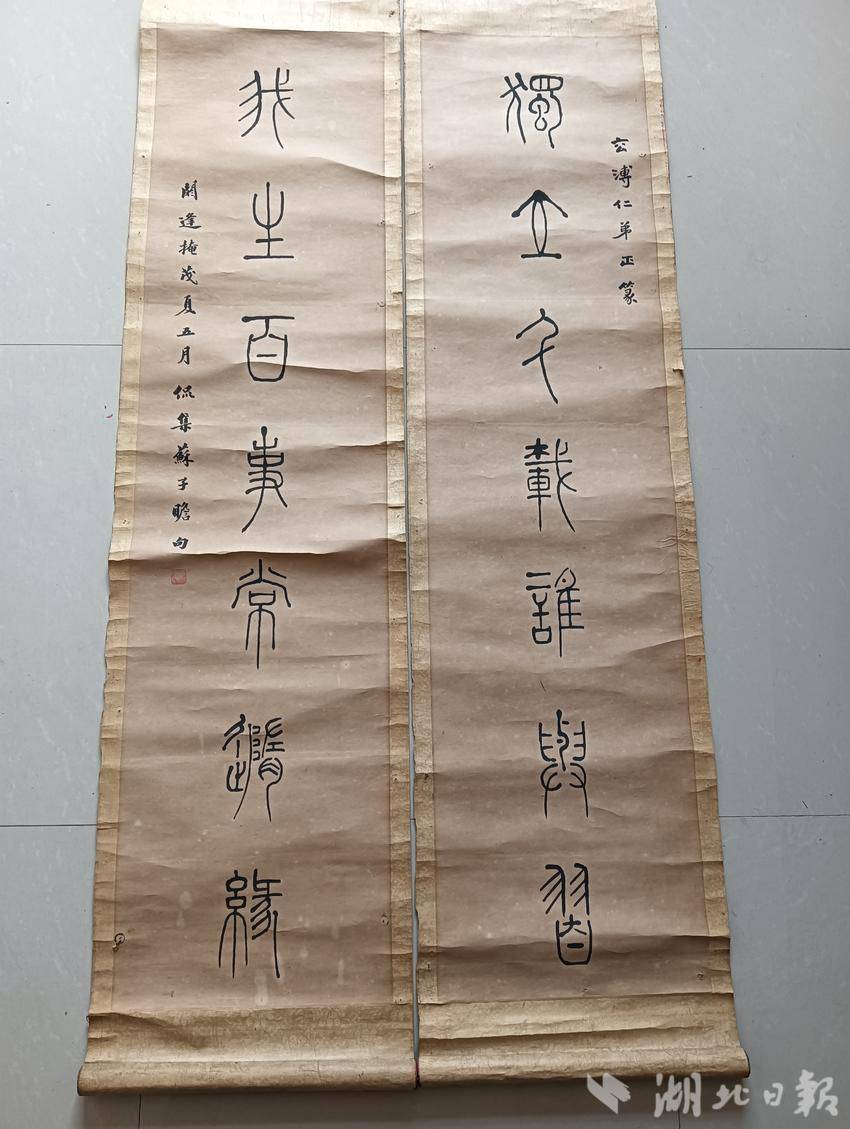 玄溥仁弟正篆
獨立千載誰與友
我生百事常隨緣
閼逢掩茂夏五月侃集蘇子瞻句
湖北日報